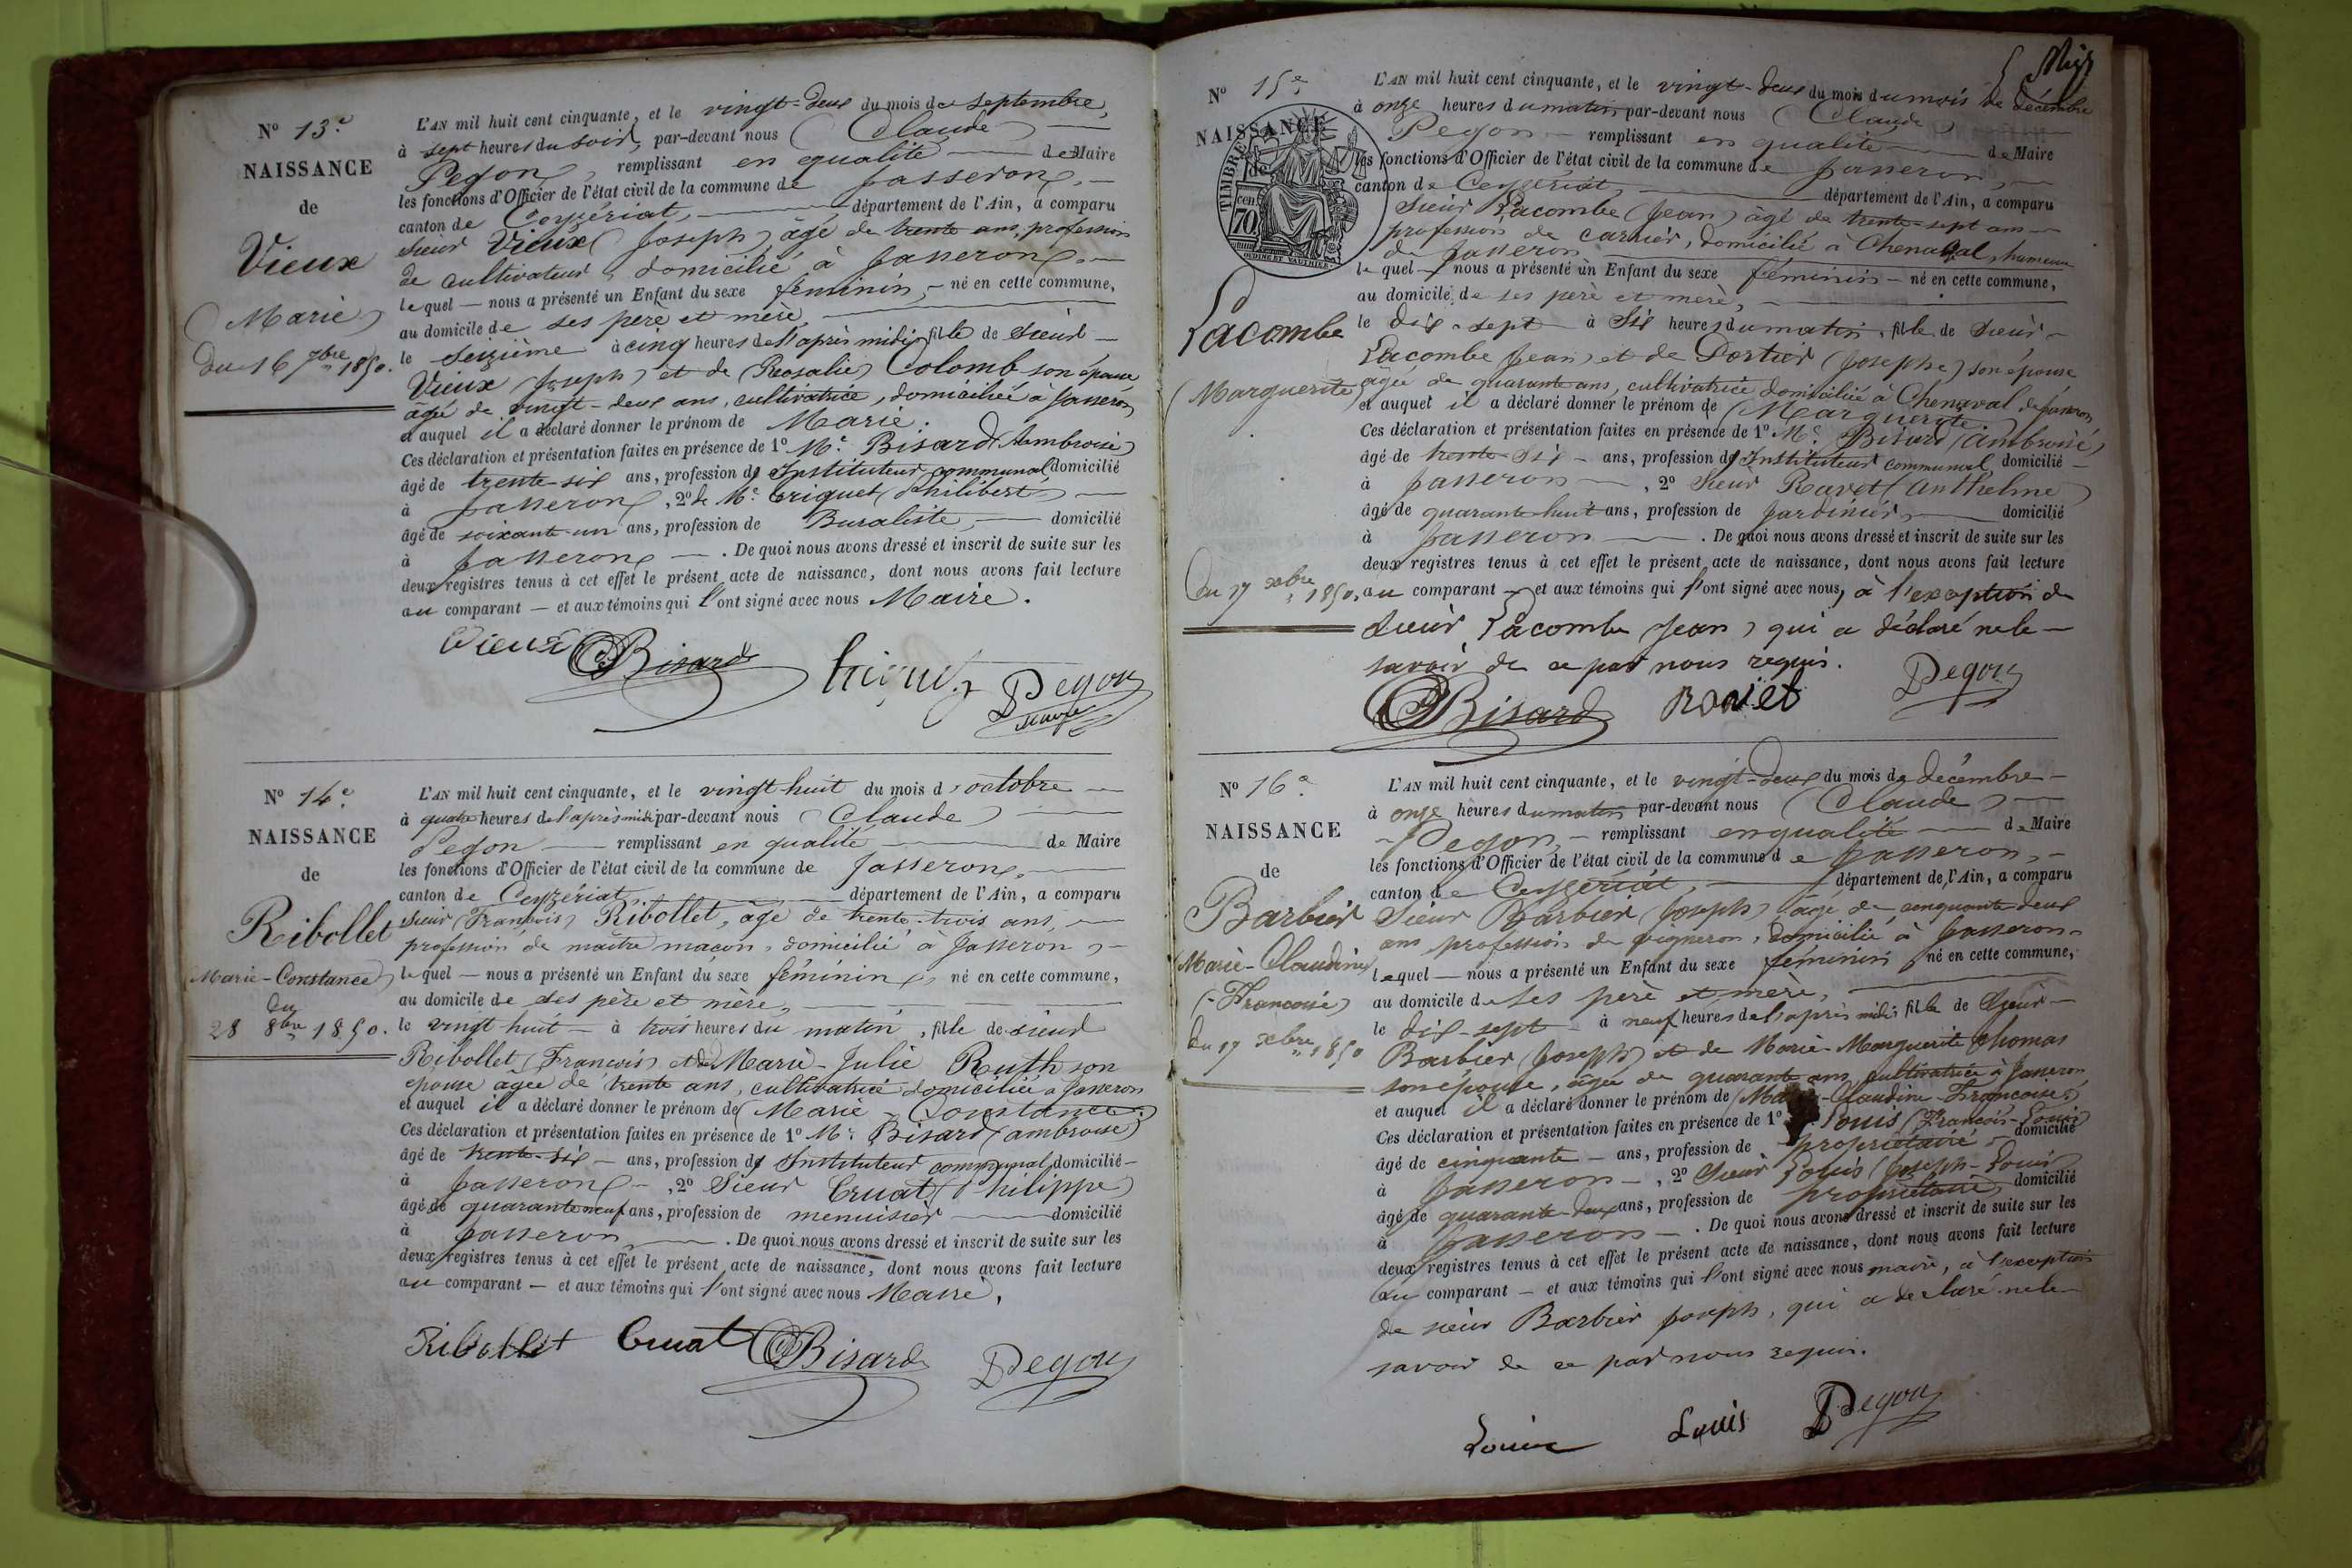 N° 13e
NAISSANCE
de
Vieux
(Marie)
Du 16 7bre 1850.
L'AN mil huit cent cinquante, et le vingt-deux du mois de septembre,
à sept heures du soir, par-devant nous (Claude)
Pegon, remplissant en qualité de Maire
les fonctions d'Officier de l'état civil de la commune de Jasseron,
canton de Ceyzériat, département de l'Ain, a comparu
sieur Vieux (Joseph), âgé de trente ans, profession
de cultivateur, domicilié à Jasseron,
lequel nous a présenté un Enfant du sexe féminin, né en cette commune,
au domicile de ses père et mère,
le seizième à cinq heures de l'après midi, fille de sieur
Vieux (Joseph) et de (Rosalie) Colomb son épouse
âgé de vingt-deux ans, cultivatrice, domiciliée à Jasseron
et auquel il a déclaré donner le prénom de Marie.
Ces déclaration et présentation faites en présence de 1° Mr. Bisard (Ambroise)
âgé de trente-six ans, profession d' Instituteur communal domicilié
à Jasseron, 2° de Mr. Criquet (Philibert)
âgé de soixante-un ans, profession de Buraliste, domicilié
à Jasseron. De quoi nous avons dressé et inscrit de suite sur les
deux registres tenus à cet effet le présent acte de naissance, dont nous avons fait lecture
au comparant et aux témoins qui l'ont signé avec nous Maire.
Vieux Bisard Pegon
maire
N° 14e.
NAISSANCE
de
Ribollet
(Marie-Constance)
du
28 8bre 1850.
L'AN mil huit cent cinquante, et le vingt huit du mois d'octobre
à quatre heures de l'après midi par-devant nous (Claude)
Pegon remplissant en qualité de Maire
les fonctions d'Officier de l'état civil de la commune de Jasseron,
canton de Ceyzériat, département de l'Ain, a comparu
sieur (François) Ribollet, âgé de trente-trois ans,
profession de maître maçon, domicilié à Jasseron,
lequel nous a présenté un Enfant du sexe féminin, né en cette commune,
au domicile de ses père et mère,
le vingt huit à trois heures du matin, fille de sieur
Ribollet (François) et de Marie-Julie Ruth son
épouse âgée de trente ans, cultivatrice domiciliée à Jasseron
et auquel il a déclaré donner le prénom de (Marie-Constance.)
Ces déclaration et présentation faites en présence de 1° Mr. Bisard (ambroise)
âgé de trente-six ans, profession d' Instituteur communal domicilié
à Jasseron, 2° Sieur Cruat (Philippe)
âgé de quarante neuf ans, profession de menuisier domicilié
à Jasseron. De quoi nous avons dressé et inscrit de suite sur les
deux registres tenus à cet effet le présent acte de naissance, dont nous avons fait lecture
au comparant et aux témoins qui l'ont signé avec nous Maire.
Ribollet Cruat Bisard Pegon
N° 15e.
NAISSANCE
de
TIMBRE
70 cen.
OUDINÉ ET VAUTHIER
Lacombe
(Marguerite)
Du 17 xbre 1850.
L'AN mil huit cent cinquante, et le vingt-deux du mois du mois de décembre
à onze heures du matin, par-devant nous (Claude)
Pegon remplissant en qualité de Maire
les fonctions d'Officier de l'état civil de la commune de Jasseron,
canton de Ceyzériat, département de l'Ain, a comparu
sieur Lacombe (Jean) âgé de trente-sept ans
profession de carrier, domicilié à Chenaval, hameau
de Jasseron
lequel nous a présenté un Enfant du sexe féminin né en cette commune,
au domicile de ses père et mère,
le dix-sept à six heures du matin, fille de sieur
Lacombe Jean) et de Portier (Josephe) son épouse
âgée de quarante ans, cultivatrice domiciliée à Chenaval de Jasseron
et auquel il a déclaré donner le prénom de (Marguerite.
Ces déclaration et présentation faites en présence de 1° Mr. Bisard (Ambroise)
âgé de trente-six ans, profession d' Instituteur communal, domicilié
à Jasseron, 2° Sieur Ravet (Anthelme)
âgé de quarante-huit ans, profession de Jardinier, domicilié
à Jasseron. De quoi nous avons dressé et inscrit de suite sur les
deux registres tenus à cet effet le présent acte de naissance, dont nous avons fait lecture
au comparant et aux témoins qui l'ont signé avec nous, à l'exception de
sieur Lacombe Jean) qui a déclaré ne le
savoir de ce par nous requis.
Bisard Ravet Pegon
N° 16e.
NAISSANCE
de
Barbier
(Marie-Claudine
(-Francoise)
du 17 xbre 1850
L'AN mil huit cent cinquante, et le vingt-deux du mois de décembre
à onze heures du matin par-devant nous (Claude)
Pegon, remplissant en qualité de Maire
les fonctions d'Officier de l'état civil de la commune de Jasseron,
canton de Ceyzériat, département de l'Ain, a comparu
Sieur Barbier (Joseph) âgé de cinquante deux
ans profession de vigneron, domicilié à Jasseron
lequel nous a présenté un Enfant du sexe féminin, né en cette commune,
au domicile de ses père et mère,
le dix-sept à neuf heures de l'après midi fille de Sieur
Barbier (Joseph) et de Marie-Marguerite Thomas
son épouse, âgée de quarante ans cultivatrice à Jasseron
et auquel il a déclaré donner le prénom de (Marie-Claudine-Francoise.)
Ces déclaration et présentation faites en présence de 1° Louis (François-Louis)
âgé de cinquante ans, profession de propriétaire domicilié
à Jasseron, 2° Sieur Louis (Joseph-Louis)
âgé de quarante-deux ans, profession de propriétaire domicilié
à Jasseron. De quoi nous avons dressé et inscrit de suite sur les
deux registres tenus à cet effet le présent acte de naissance, dont nous avons fait lecture
au comparant et aux témoins qui l'ont signé avec nous maire, à l'exception
de sieur Barbier Joseph, qui a déclaré ne le
savoir de ce par nous requis.
Louis Louis Pegon